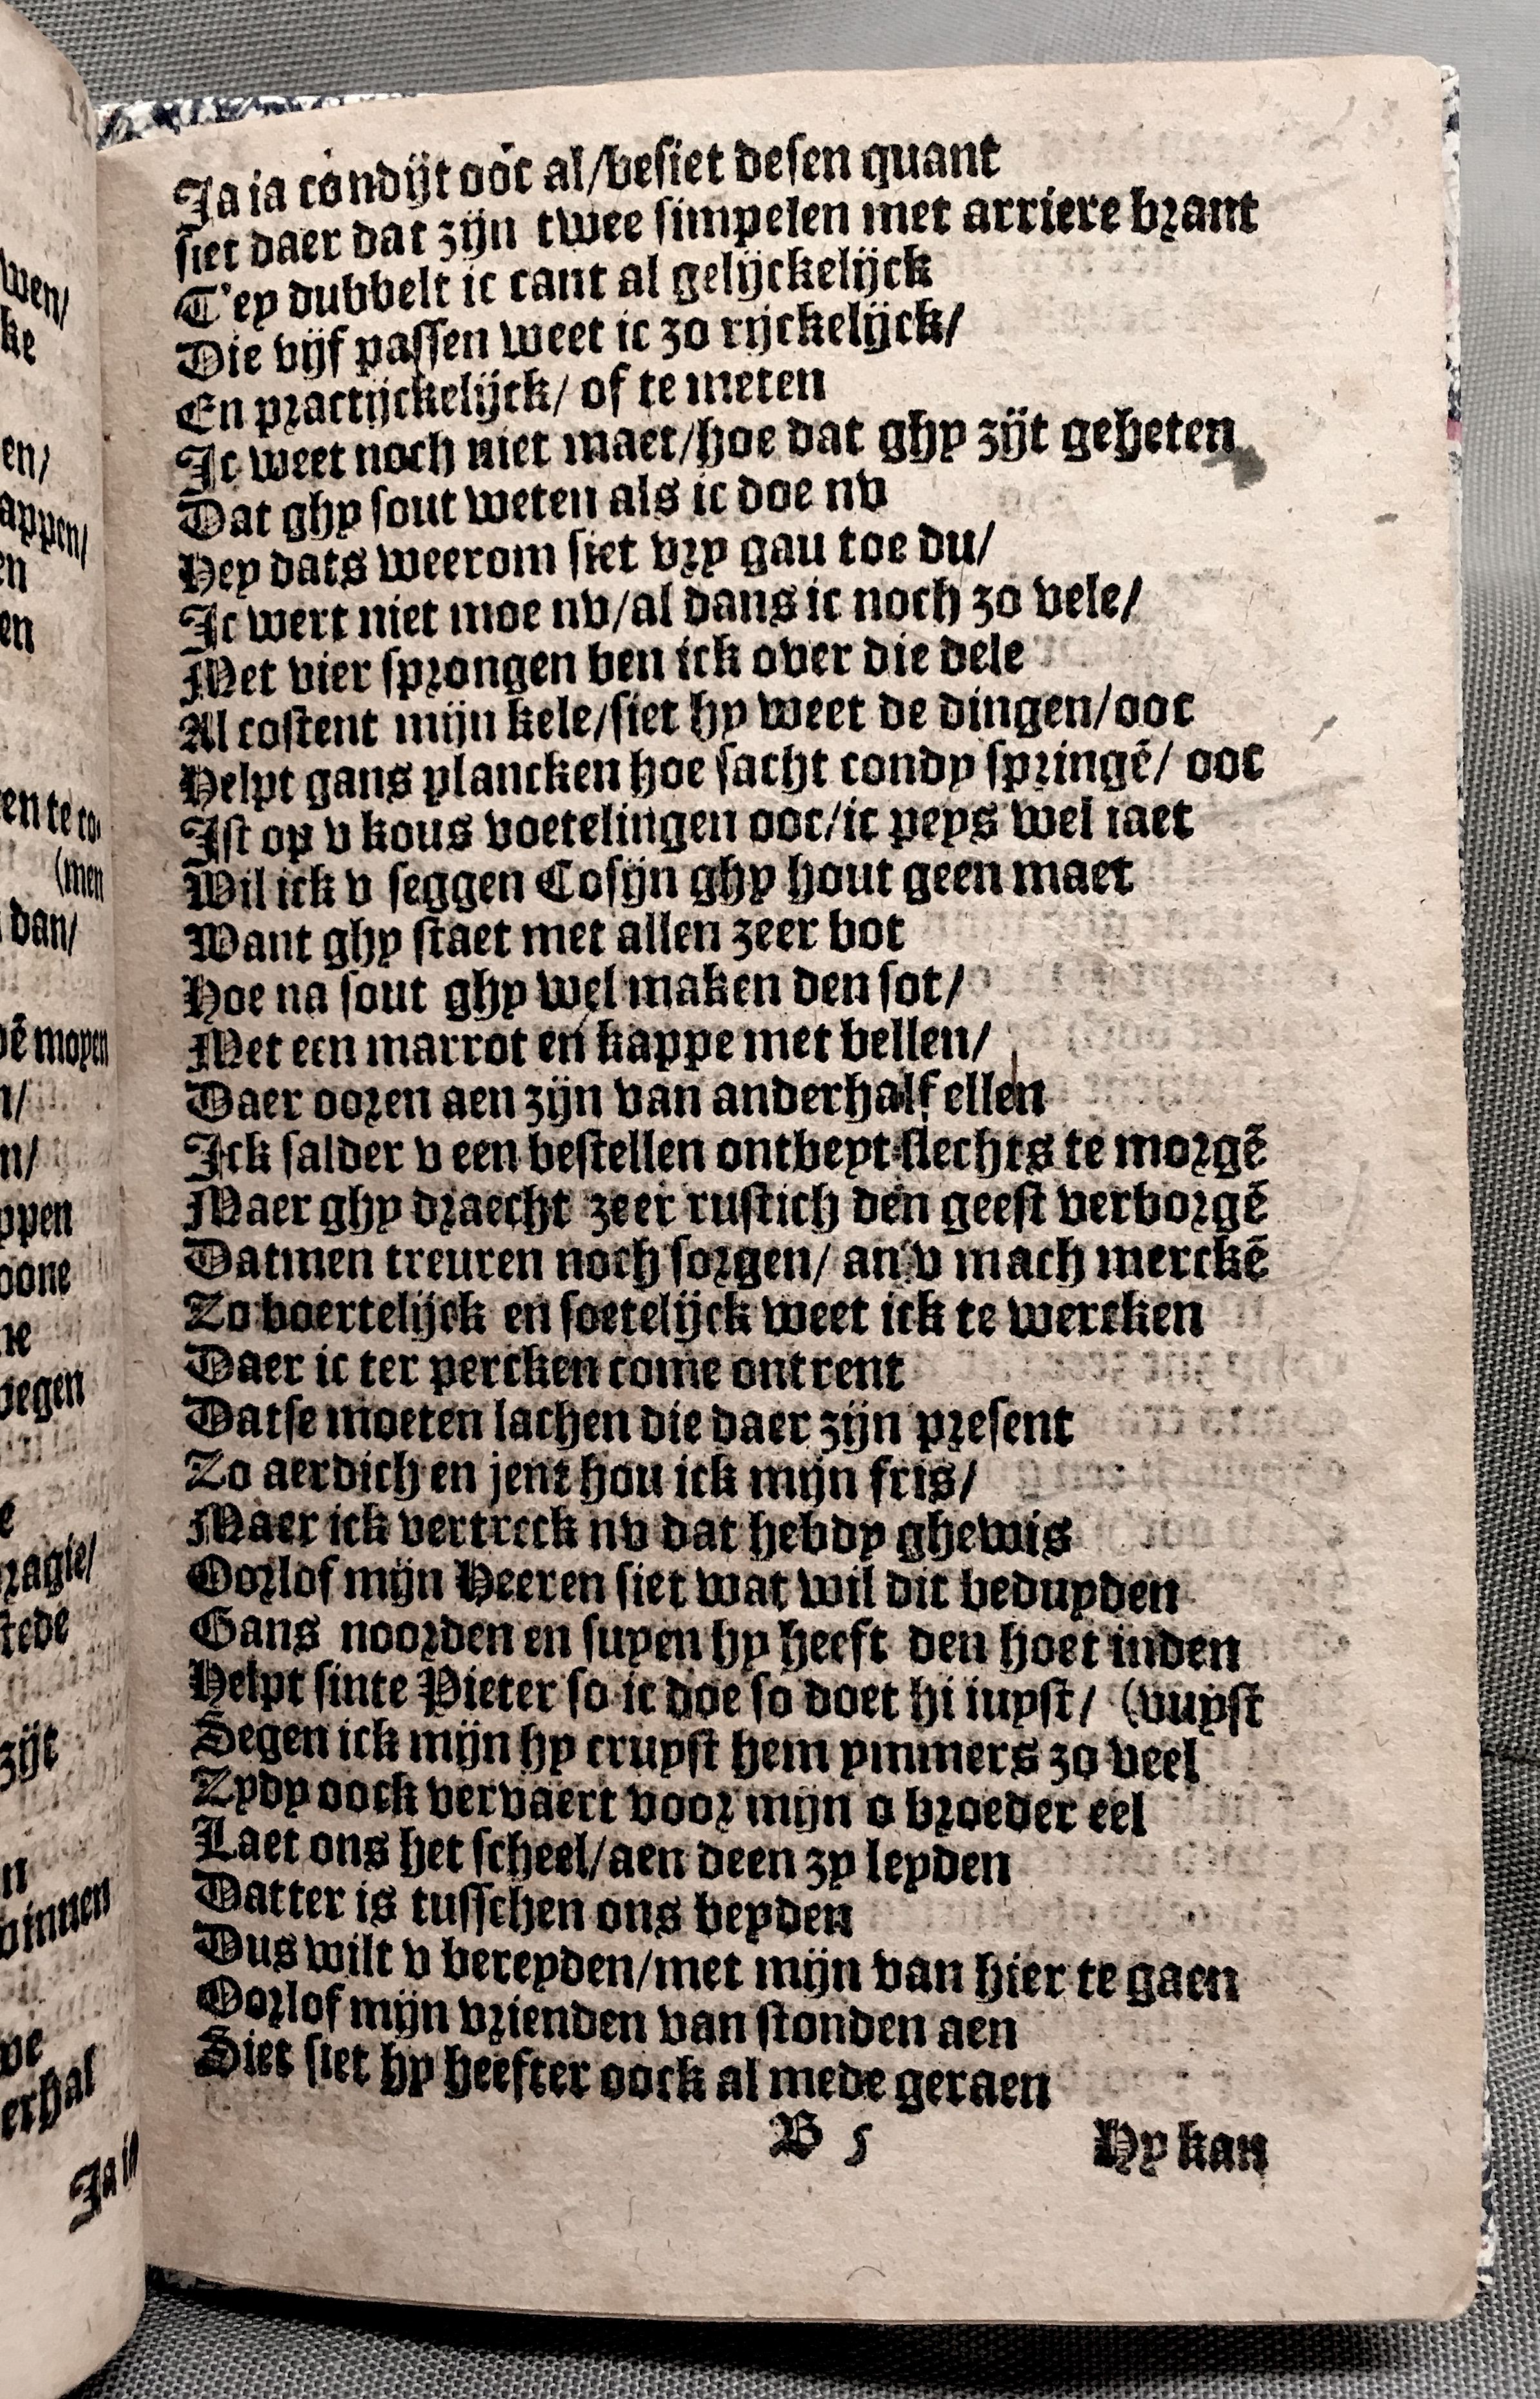 Ja ia condijt ooc al/besiet desen quant
siet daer dat zijn twee simpelen met arriere brant
T'ey dubbelt ic cant al gelijckelijck
Die vijf passen weet ic zo rijckelijck/
En practijckelijck/ of te meten
Ic weet noch niet maet/hoe dat ghy zijt geheten
Dat ghy sout weten als ic doe nv
Hey dats weerom siet vry gau toe du/
Ic wert niet moe nv/al dans ic noch zo vele/
Met vier sprongen ben ick over die dele
Al costent mijn kele/siet hy weet de dingen/ooc
Helpt gans plancken hoe sacht condy springē/ ooc
Ist op v kous voetelingen ooc/ic peys wel iaet
Wil ick v seggen Cosijn ghy hout geen maet
Want ghy staet met allen zeer bot
Hoe na sout ghy wel maken den sot/
Met een marrot en kappe met bellen/
Daer ooren aen zijn van anderhalf ellen
Ick salder v een bestellen ontbeyt slechts te morgē
Maer ghy draecht zeer rustich den geest verborgē
Datmen treuren noch sorgen/ an v mach merckē
Zo boertelijck en soetelijck weet ick te wercken
Daer ic ter percken come ontrent
Datse moeten lachen die daer zijn present
Zo aerdich en jent hou ick mijn fris/
Maer ick vertreck nv dat hebdy ghewis
Oorlof mijn Heeren siet wat wil dit beduyden
Gans noorden en suyen hy heeft den hoet inden
Helpt sinte Pieter so ic doe so doet hi iuyst/ (vuyst
Segen ick mijn hy cruyst hem ymmers zo veel
Zydy oock vervaert voor mijn o broeder eel
Laet ons het scheel/aen deen zy leyden
Datter is tusschen ons beyden
Dus wilt v bereyden/met mijn van hier te gaen
Oorlof mijn vrienden van stonden aen
Siet siet hy heefter oock al mede geraen
B 5 Hy kan
wen/
ke
en/
appen/
en
en
en te co
(men
dan/
dē moyen
n/
n/
ppen
oone
ne
wegen
e
ragie/
stede
zijt
n
winnen
we
erhal
Ja ia